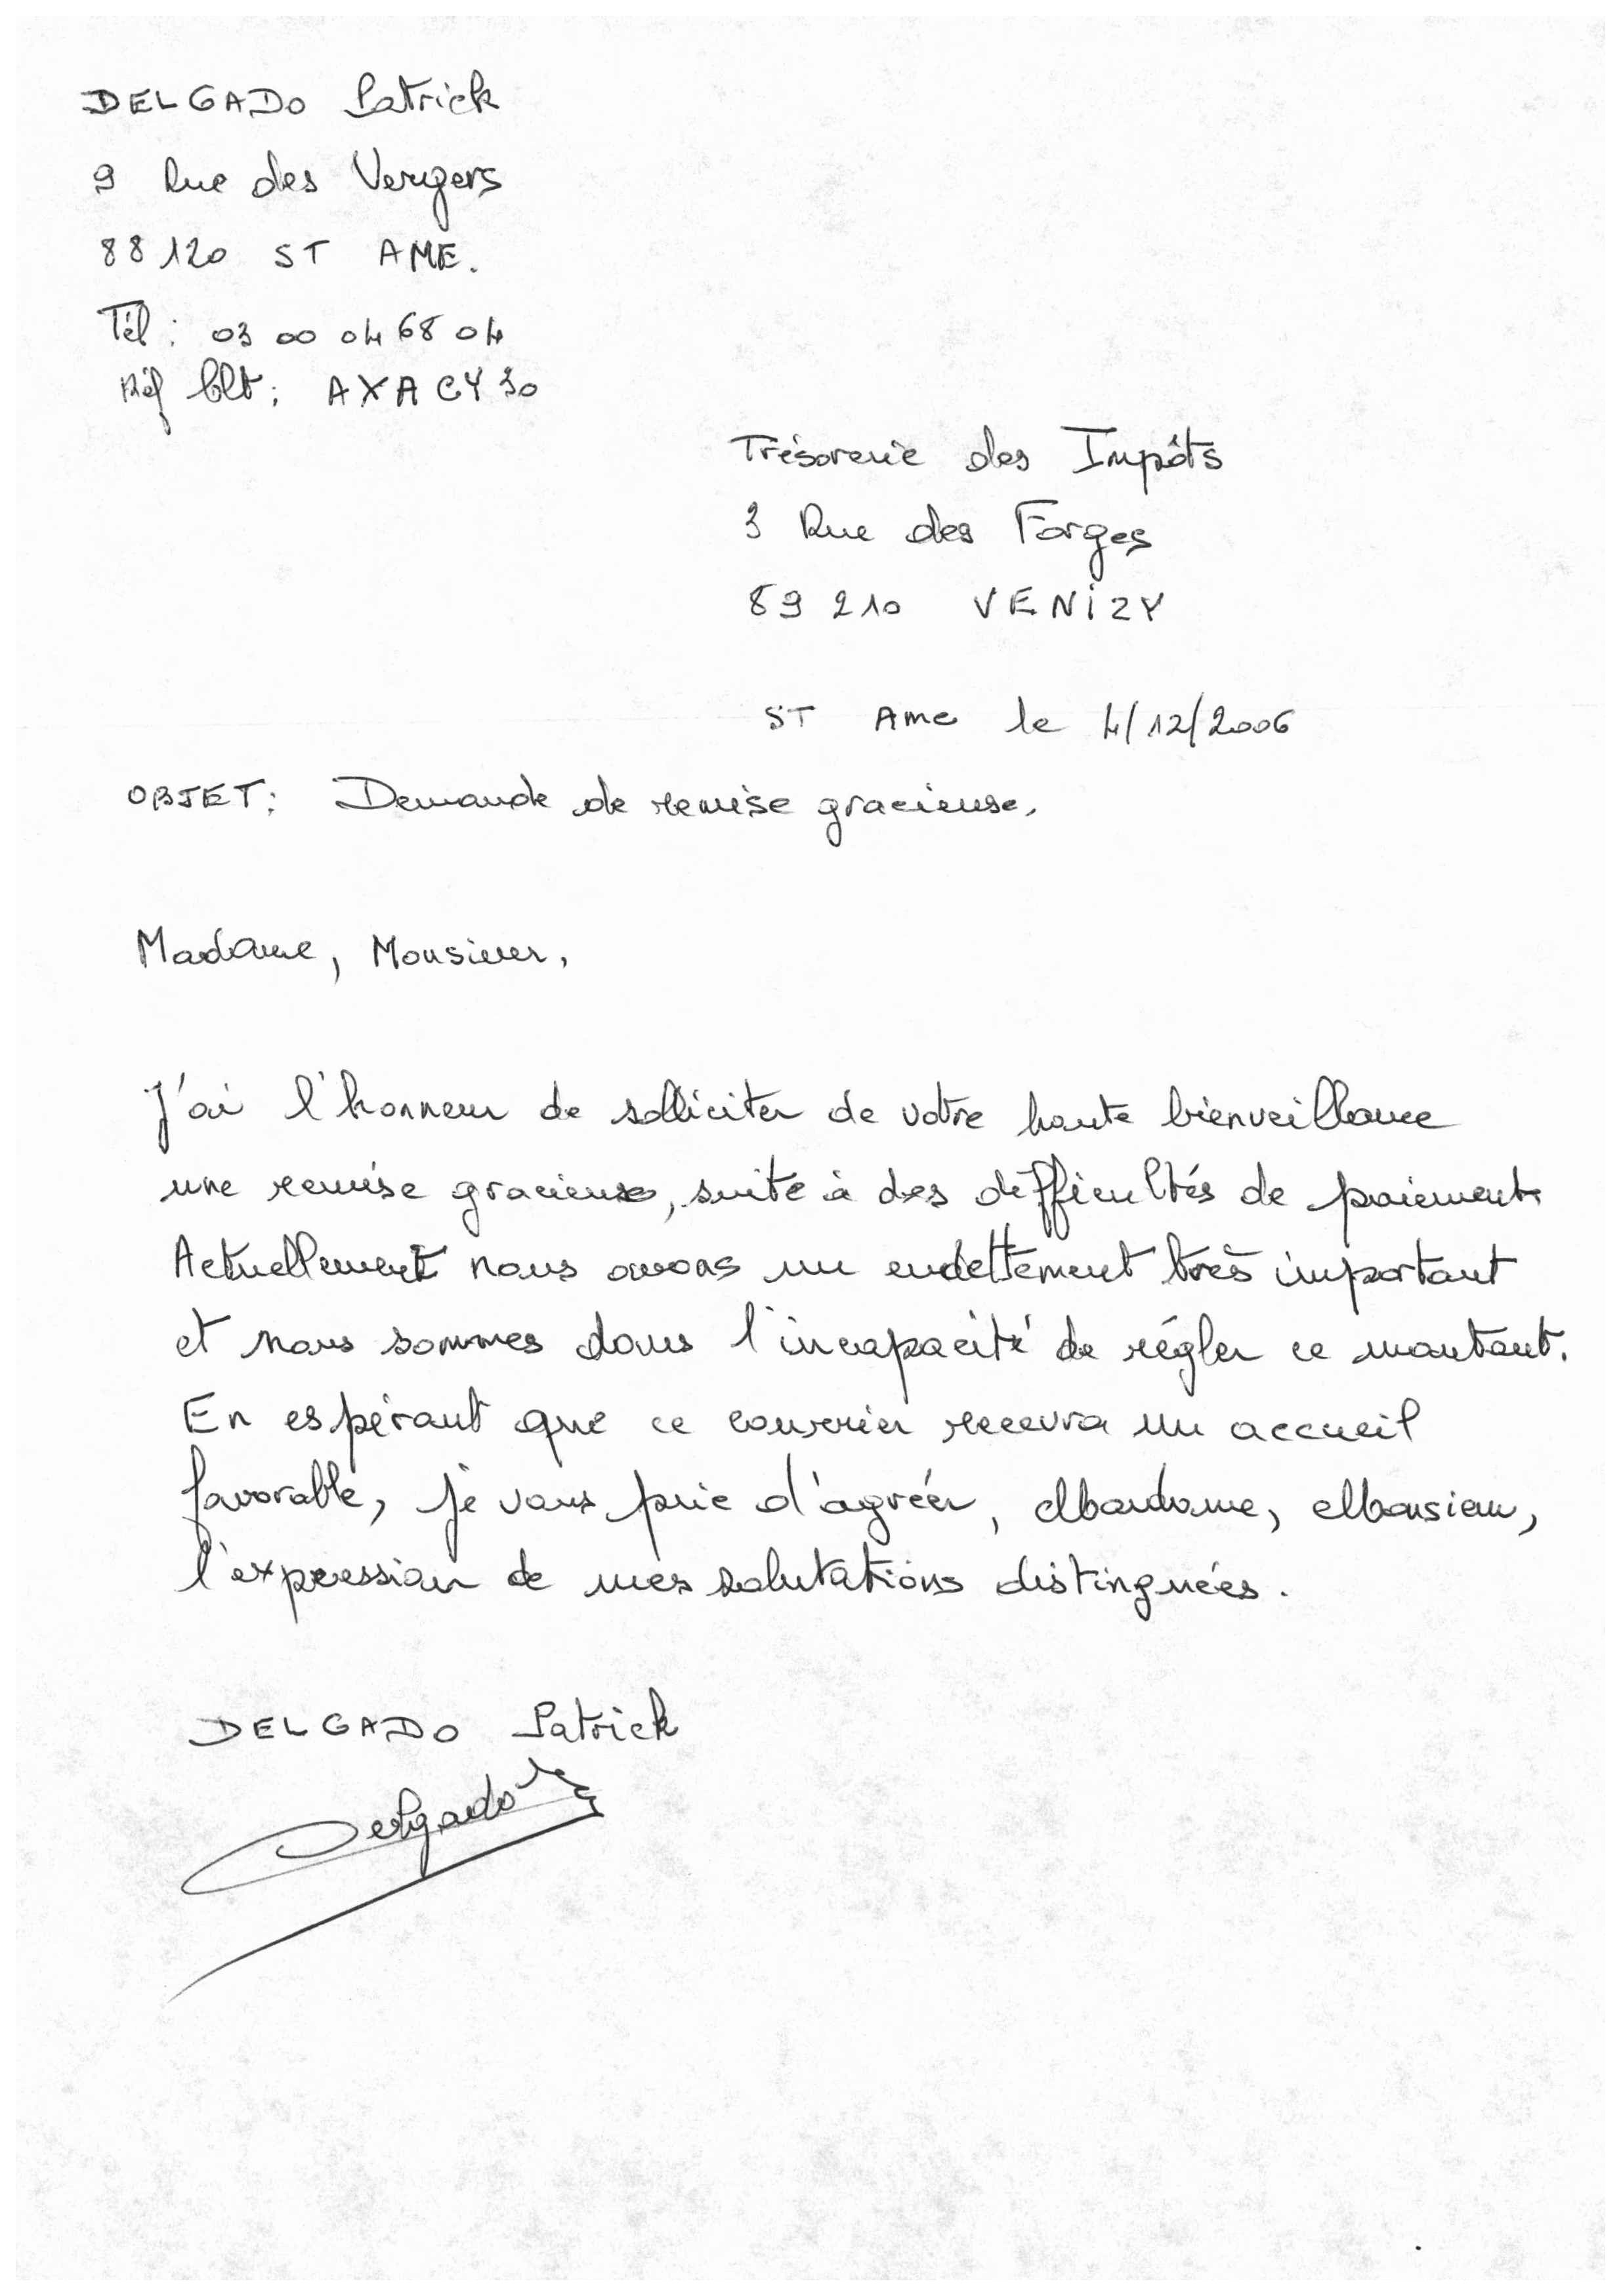 DELGADO Patrick
9 Rue des Vergers
88120 ST AME.
Tél : 03 00 04 68 04
Réf Clt : AXACY30
Trésorerie des Impôts
3 Rue des Forges
89 210 VENIZY
ST Ame le 4/12/2006
OBJET : Demande de remise gracieuse.
Madame, Monsieur,
J'ai l'honneur de solliciter de votre haute bienveillance
une remise gracieuse, suite à des difficultés de paiement.
Actuellement nous avons un endettement très important
et nous sommes dans l'incapacité de régler ce montant.
En espérant que ce courrier recevra un accueil
favorable, je vous prie d'agréer, Madame, Monsieur,
l'expression de mes salutations distinguées.
DELGADO Patrick
Delgado